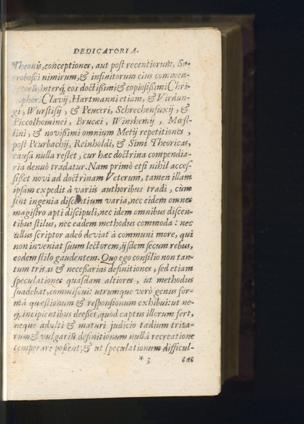 DEDICATORIA.
Theonis, conceptiones, aut post recentiorum, Sa-
crobosci nimirum, & infinitorum eius commen-
interq́ eos doctissimi & copiosissimi Chri-
Clavij, Hartmanni etiam, & Virdun-
gi, Wurstisij, & Peuceri, Schreckenfuxij, &
Piccolhominei, Brucæi, Winshemij, Mæst-
lini, & novissimi omnium Metij repetitiones,
post Purbachij, Reinholdi, & Simi Theoricas,
causa nulla restet, cur hæc doctrina compendia-
ria denuò tradatur. Nam primò etsi nihil acces-
sisset novi ad doctrinam Veterum, tamen illam
ipsam expedit à variis authoribus tradi, cùm
sint ingenia discentium varia, nec eidem omnes
magistro apti discipuli, nec idem omnibus discen-
tibus stilus, nec eadem methodus commoda: nec
ullus scriptor adeò deviat à communi more, qui
non inveniat suum lectorem, ijsdem secum rebus,
eodem stilo gaudentem. Quo ego consilio non tan-
tum tritas & necessarias definitiones, sed etiam
speculationes quasdam altiores, ut methodus
suadebat, commiscui: utrumque verò genus for-
mâ quæstionum & responsionum exhibui: ut ne-
q́; incipientibus deesset, quod captus illorum fert,
neque adulti & maturi judicio tædium trita-
rum & vulgarium definitionum nullâ recreatione
temperare possent; & ut speculationum difficul-
* 3
tas